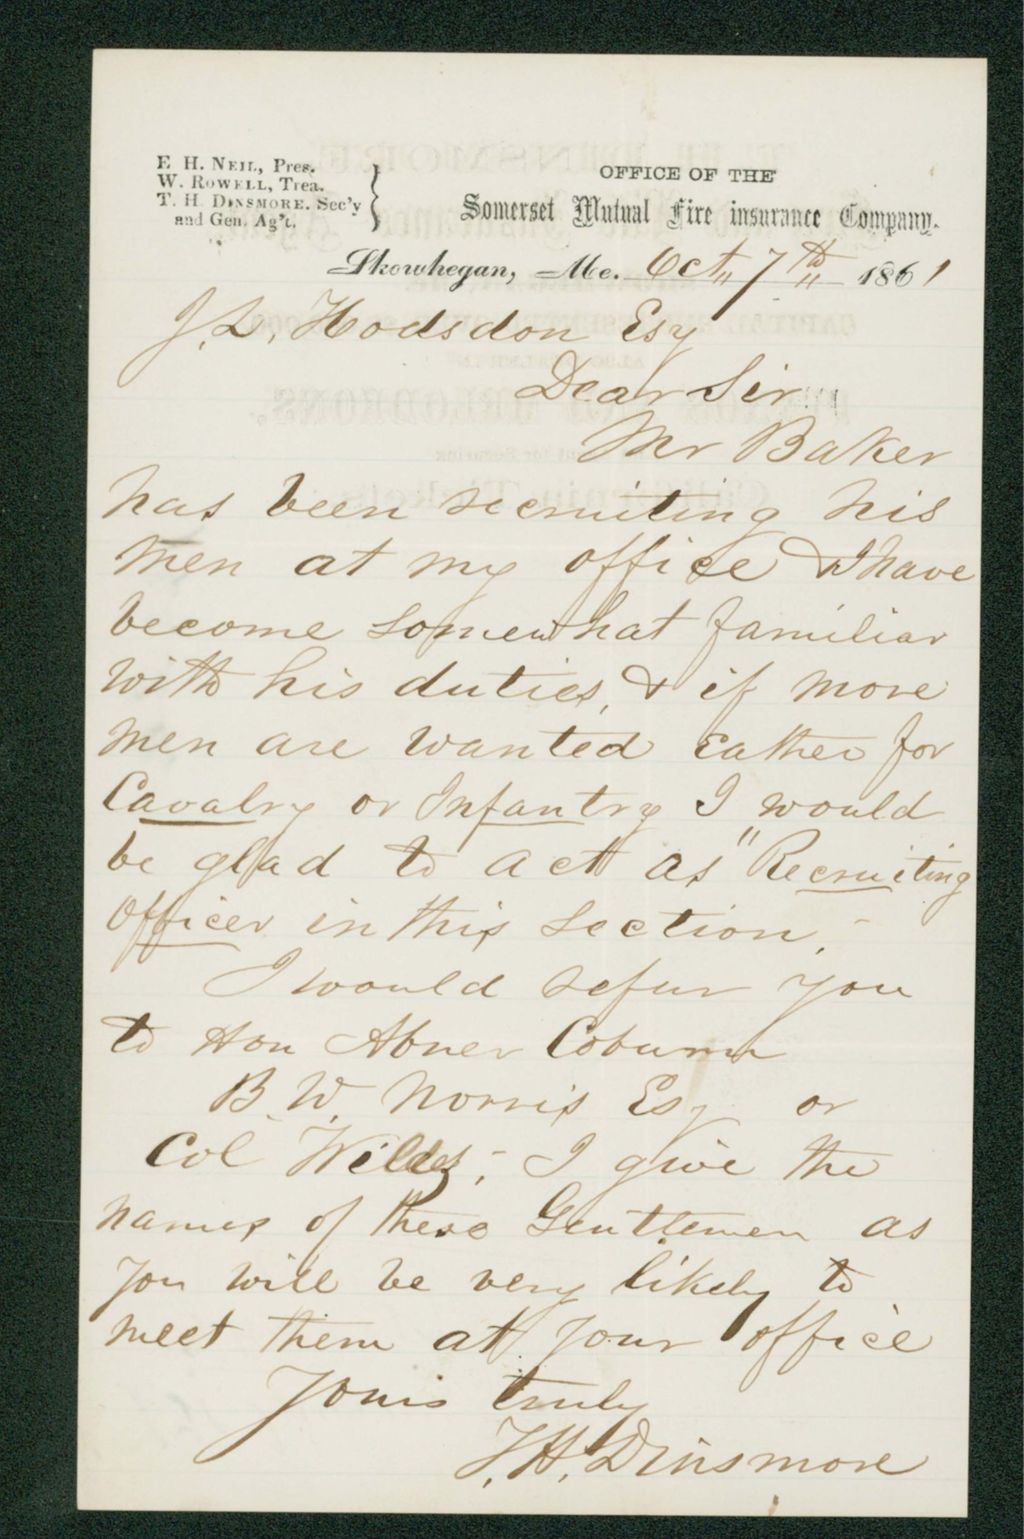 E. H. NEIL, Pres.
W. ROWELL, Trea.
T. H. DINSMORE. Sec'y
and Gen. Ag't.
OFFICE OF THE
Somerset Mutual Fire insurance Company.
Skowhegan, Me. Oct 7th 1861
J. L. Hodsdon Esq
Dear Sir
Mr Baker
has been recruiting his
men at my office & I have
become somewhat familiar
with his duties, & if more
men are wanted Eather for
Cavalry or Infantry I would
be glad to act as "Recruiting
Officer in this section, -
I would refur you
to Hon Abner Coburn
B. W. Norris Esq or
Col Wildes, - I give the
names of these Gentlemen as
you will be very likely to
meet them at your office
Yours truly
T. H. Dinsmore